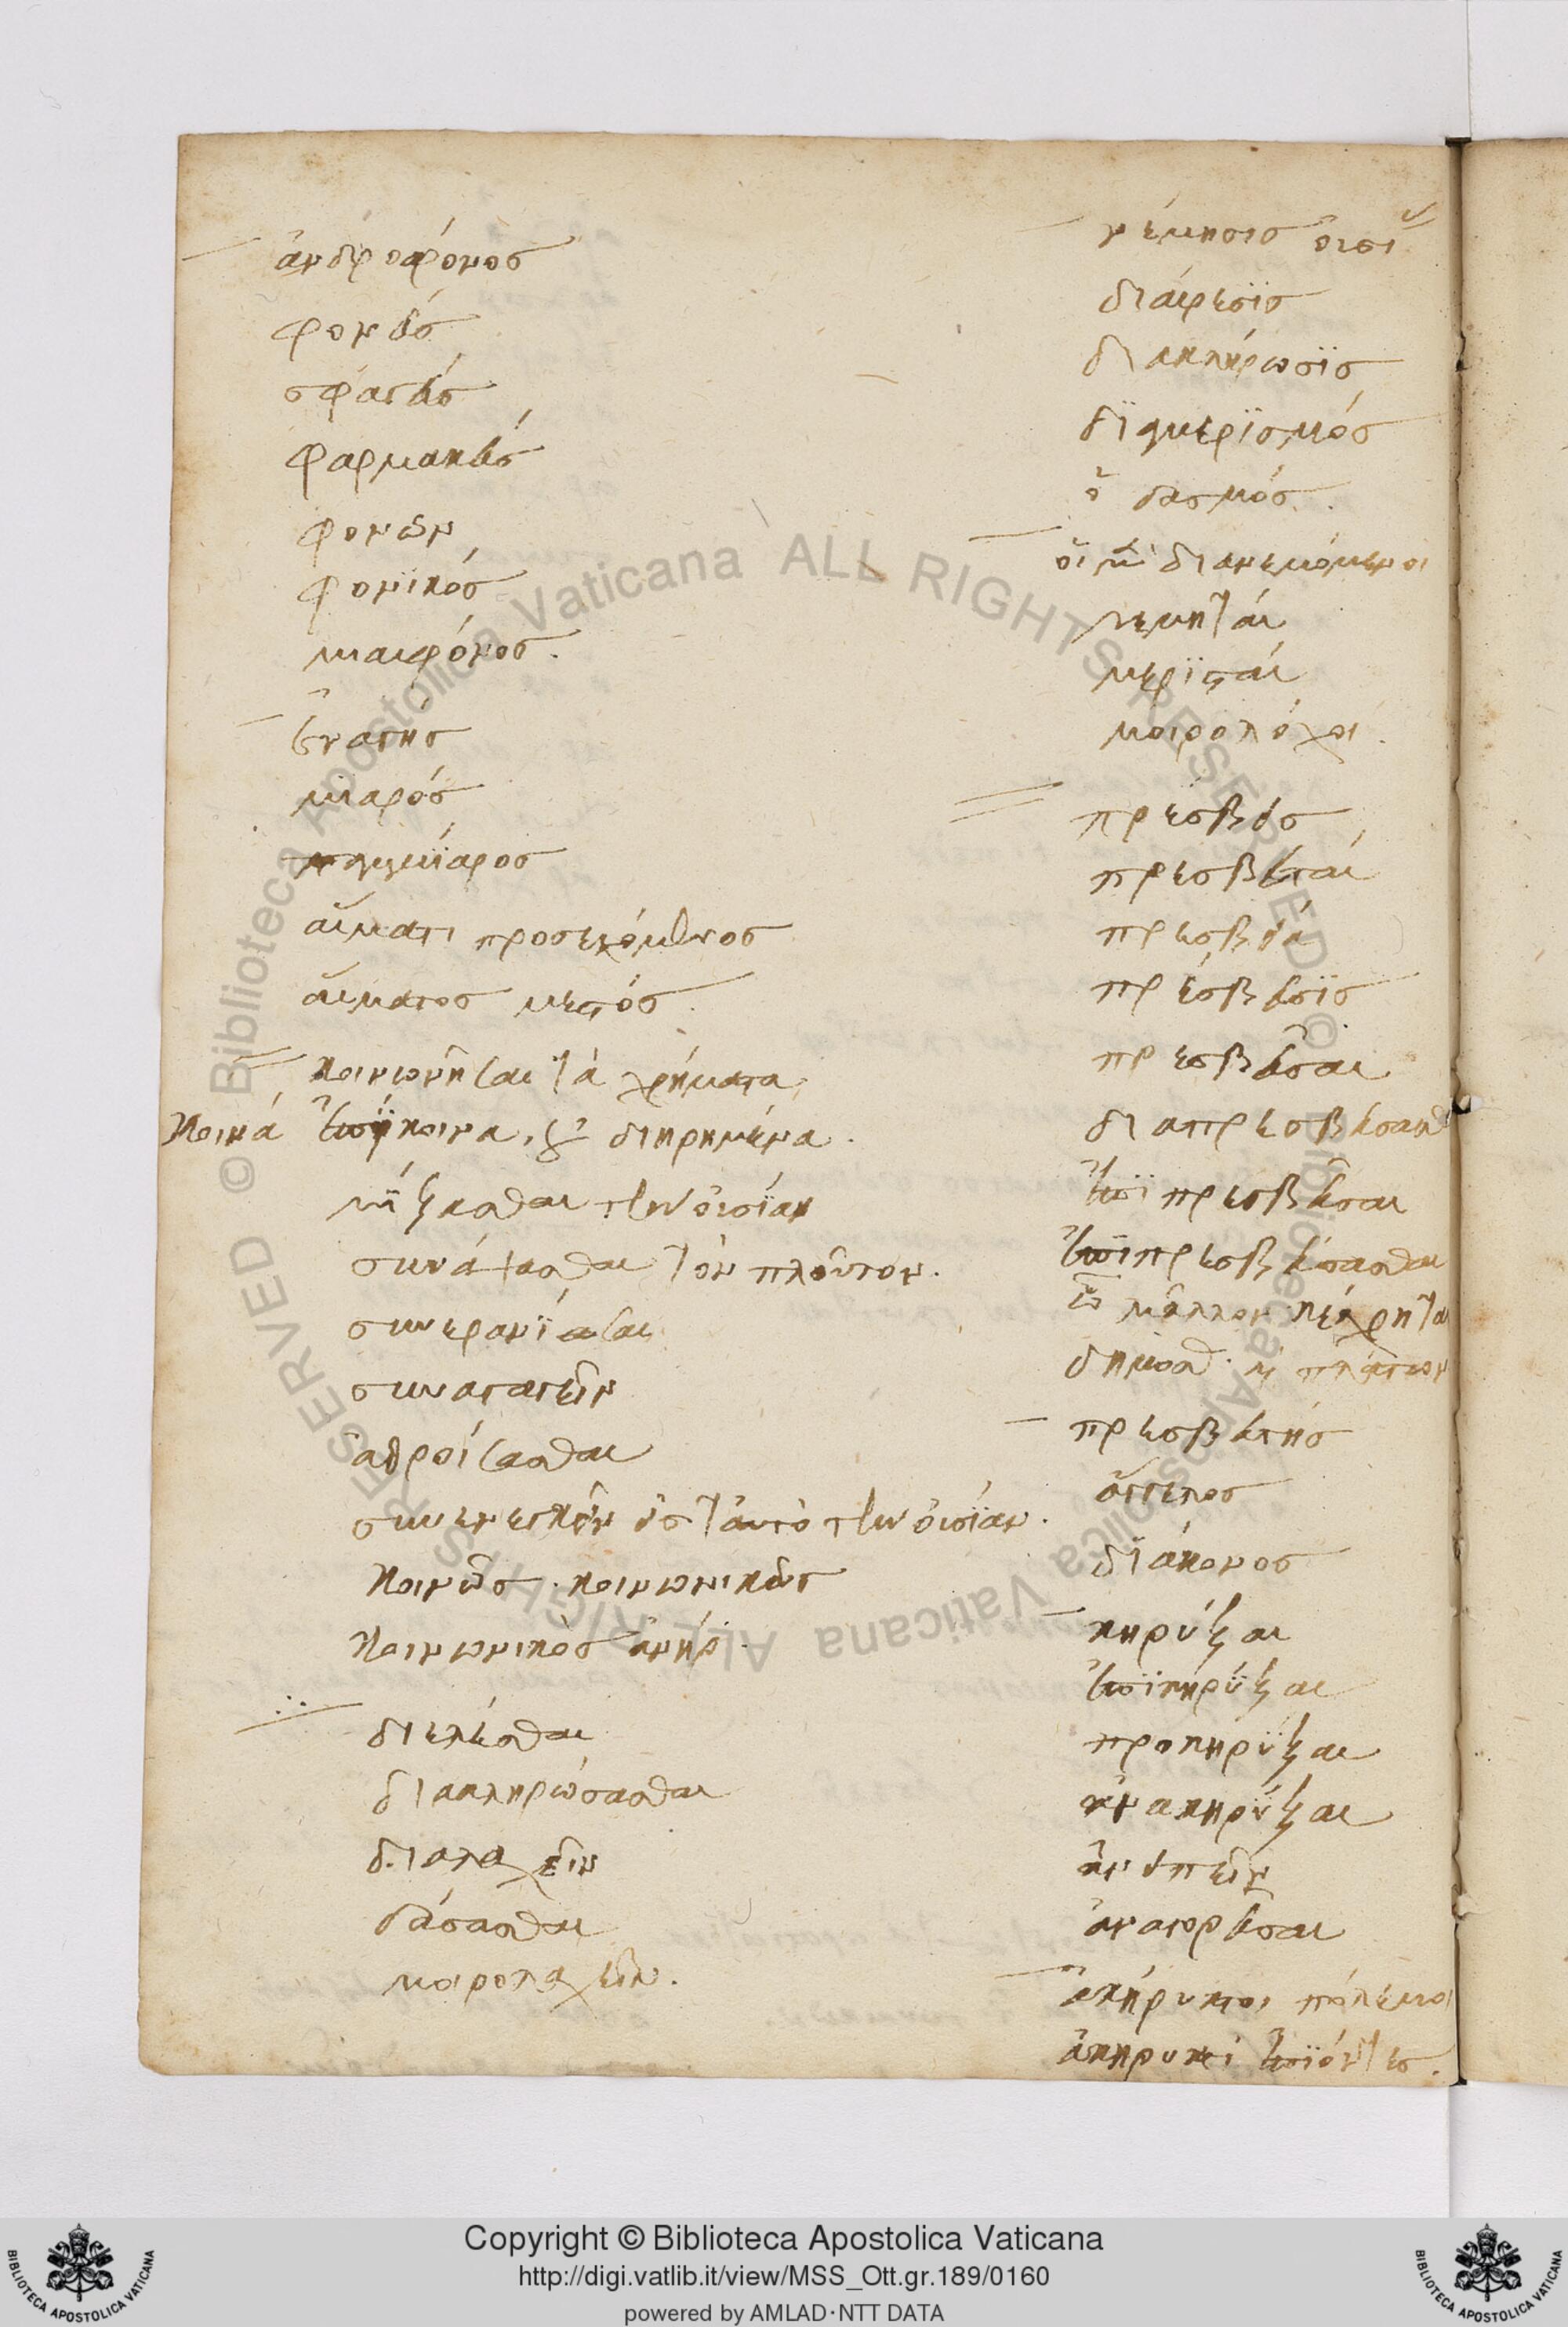 ἀνδροφόνος
φονεύς
σφαγεύς
φαρμακεύς
φονῶν
φονικός
μιαιφόνος.
ἐναγής
μιαρός
παμμίαρος
αἵματι προσεχόμενος
αἵματος μεστός.
κοινωνῆσαι τὰ χρήματα
κοινά ἐπίκοινα, διῃρημένα.
μίξασθαι τὴν οὐσίαν
συνάψασθαι τὸν πλοῦτον.
συνερανίσαι
συναγαγεῖν
ἀθροίσασθαι
συνενεγκεῖν εἰς ταυτὸ τὴν οὐσίαν.
κοινῶς. κοινωνικῶς
κοινωνικὸς ἀνήρ.
διελέσθαι
διακληρώσασθαι
διαλαχεῖν
δάσασθαι
μοιρολαχεῖν.
νέμησις οὐσιῶν
διαίρεσις
διακλήρωσις
διαμερισμός
ὁ δασμός.
οἱ διανεμόμενοι
νεμηταί
μερισταί
μοιρολόχοι.
πρέσβεις
πρεσβευταί
πρεσβεία
πρέσβευσις
πρεσβεῦσαι
διαπρεσβεύσασθαι
ἐπιπρεσβεῦσαι
ἐπιπρεσβεύσασθαι
ᾧ μᾶλλον κέχρηται
δημοσθ. ἢ πλάτων
πρεσβευτής
ἄγγελος
διάκονος
κηρύξαι
ἐπικηρύξαι
προκηρύξαι
ἀνακηρύξαι
ἀνειπεῖν
ἀναγορεῦσαι
ἀκήρυκτοι πόλεμοι
ἀκηρυκτὶ ἐπιόντες.
Copyright © Biblioteca Apostolica Vaticana
http://digi.vatlib.it/view/MSS_Ott.gr.189/0160
powered by AMLAD·NTT DATA